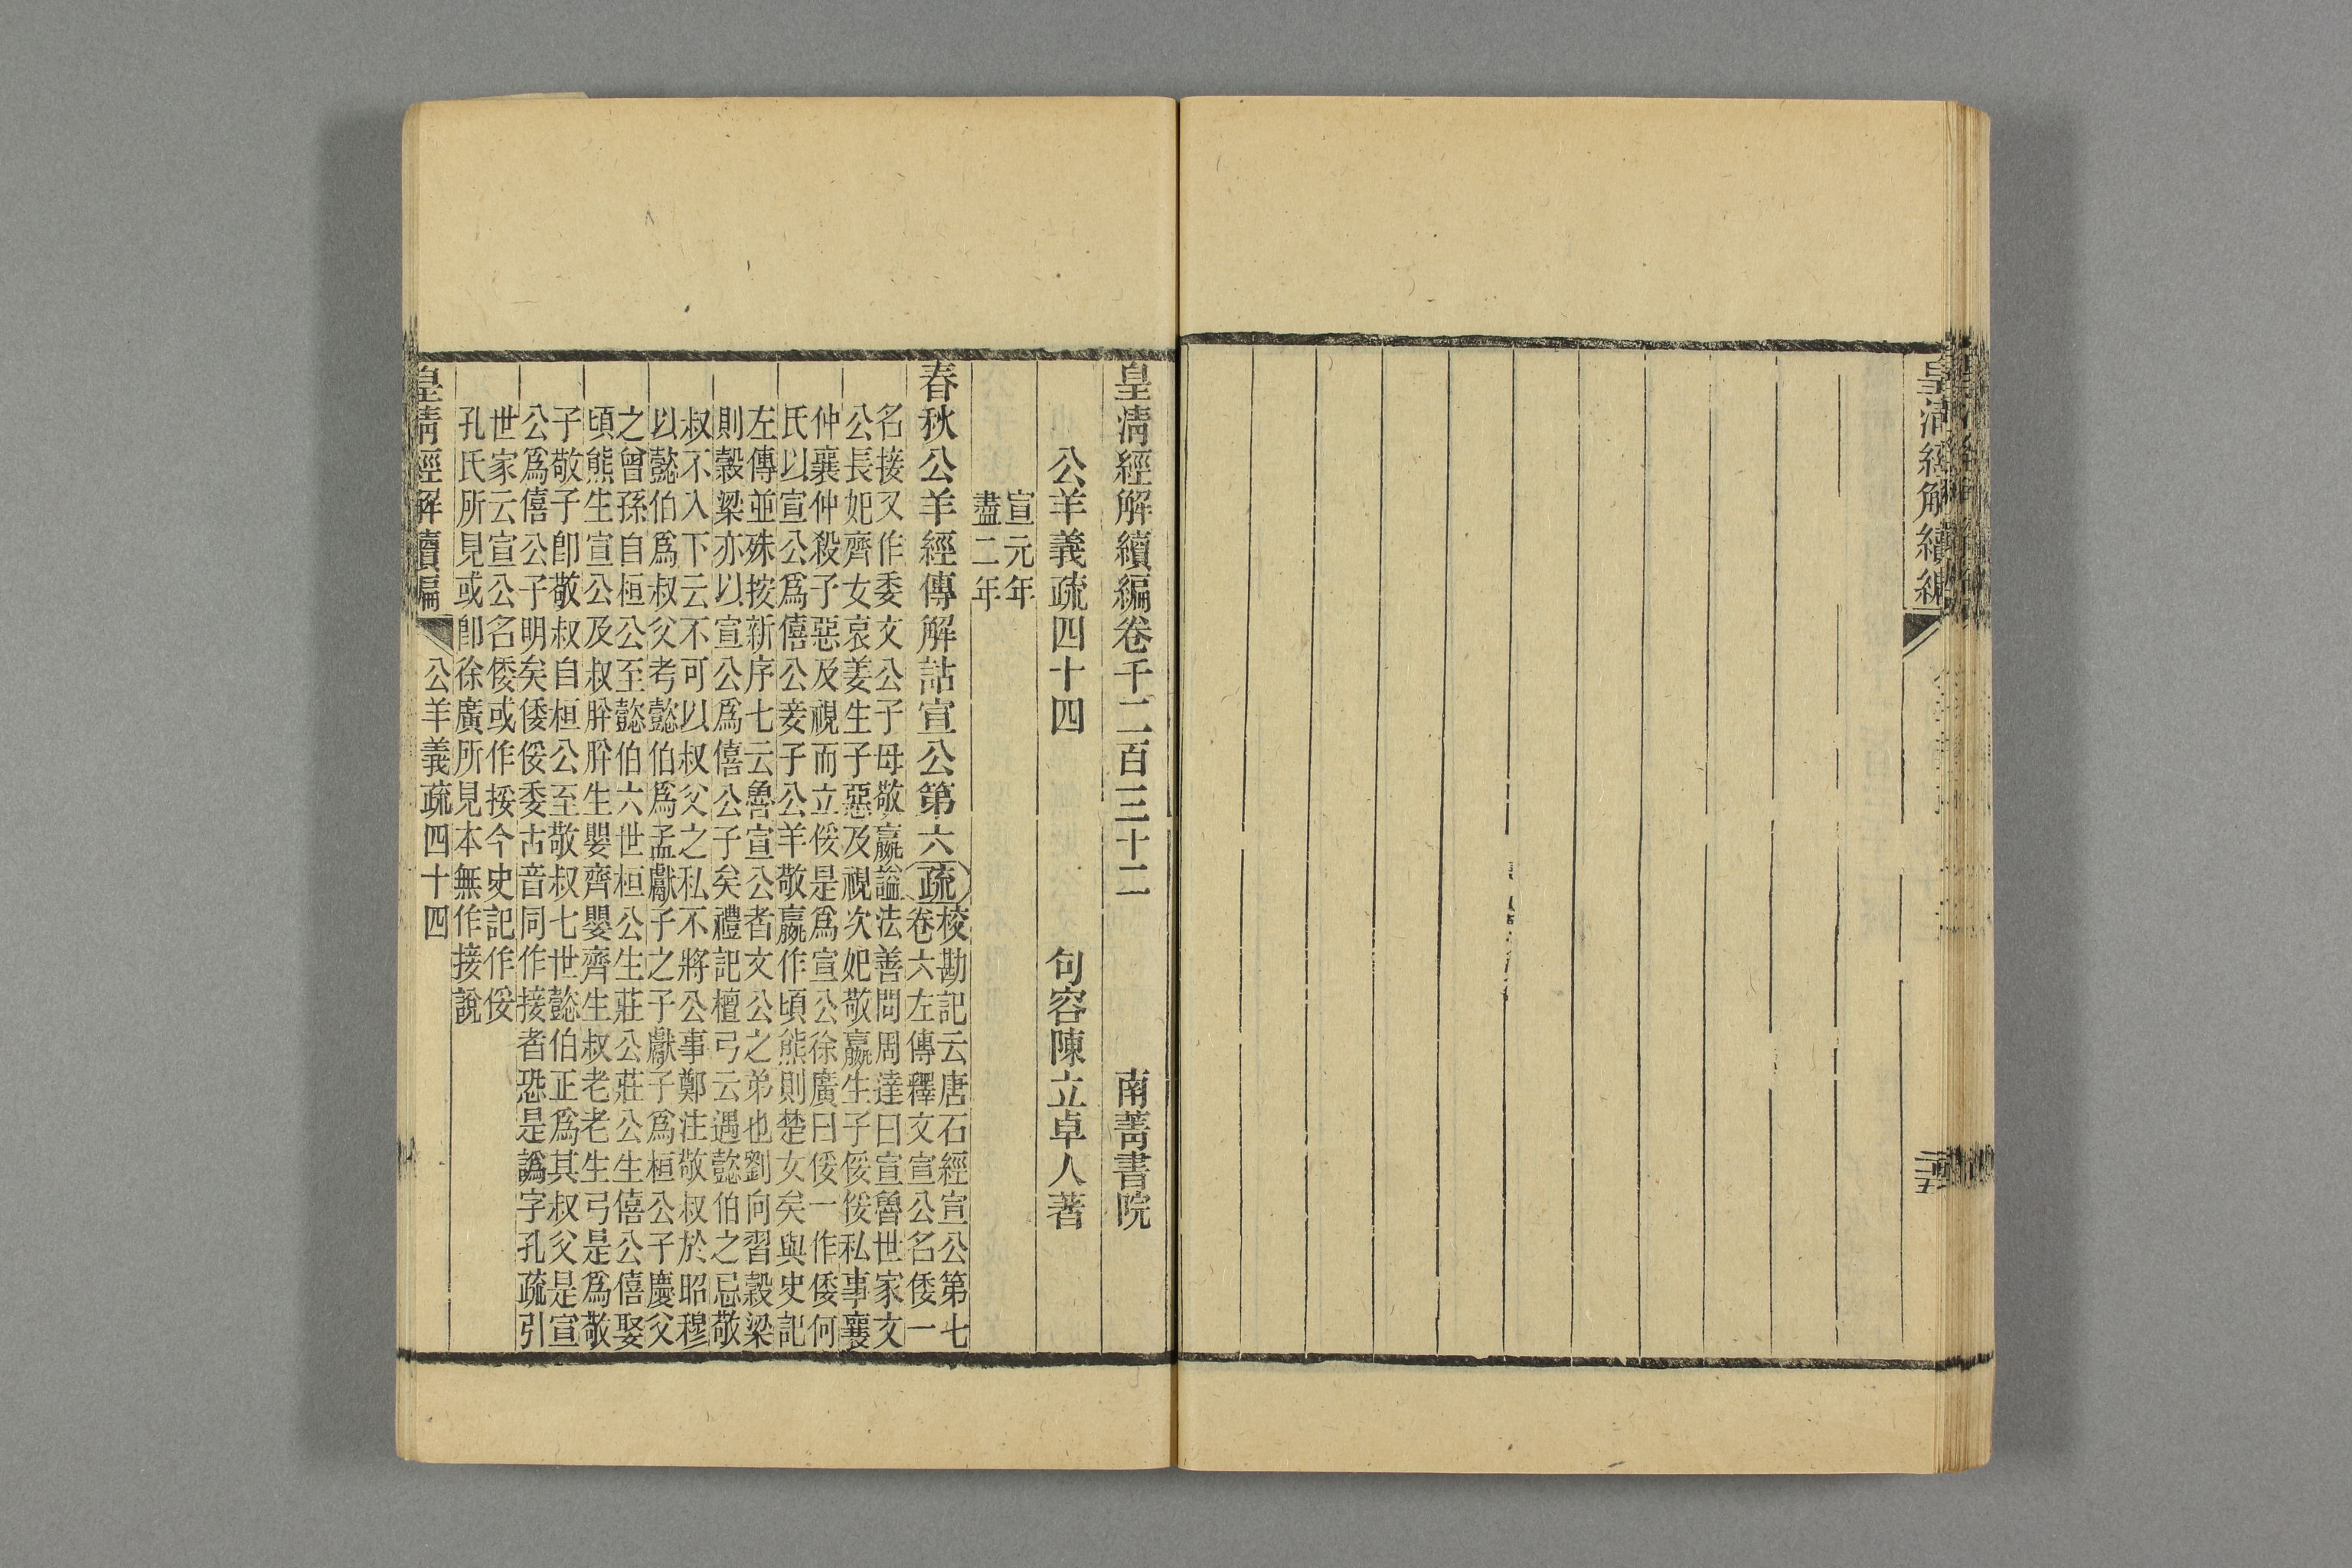 皇淸經解續編
皇淸經解續編卷千二百三十二
南菁書院
公羊義疏四十四
句容陳立卓人著
宣元年
盡二年
春秋公羊經傳解詁宣公第六
疏
校勘記云唐石經宣公第七
卷六左傳釋文宣公名倭一
名接又作委文公子母敬嬴謚法善問周達曰宣魯世家文
公長妃齊女哀姜生子惡及視次妃敬嬴生子俀俀私事襄
仲襄仲殺子惡及視而立俀是爲宣公徐廣曰俀一作倭何
氏以宣公爲僖公妾子公羊敬嬴作頃熊則楚女矣與史記
左傳並殊按新序七云魯宣公者文公之弟也劉向習穀梁
則穀梁亦以宣公爲僖公子矣禮記檀弓云遇懿伯之忌敬
叔不入下云不可以叔父之私不將公事鄭注敬叔於昭穆
以懿伯爲叔父考懿伯爲孟獻子之子獻子爲桓公子慶父
之曾孫自桓公至懿伯六世桓公生莊公莊公生僖公僖娶
頃熊生宣公及叔肸肸生嬰齊嬰齊生叔老老生弓是爲敬
子敬子卽敬叔自桓公至敬叔七世懿伯正爲其叔父是宣
公爲僖公子明矣倭俀委古音同作接者恐是譌字孔疏引
世家云宣公名倭或作挼今史記作俀
孔氏所見或卽徐廣所見本無作接說
皇淸經解續編
公羊義疏四十四